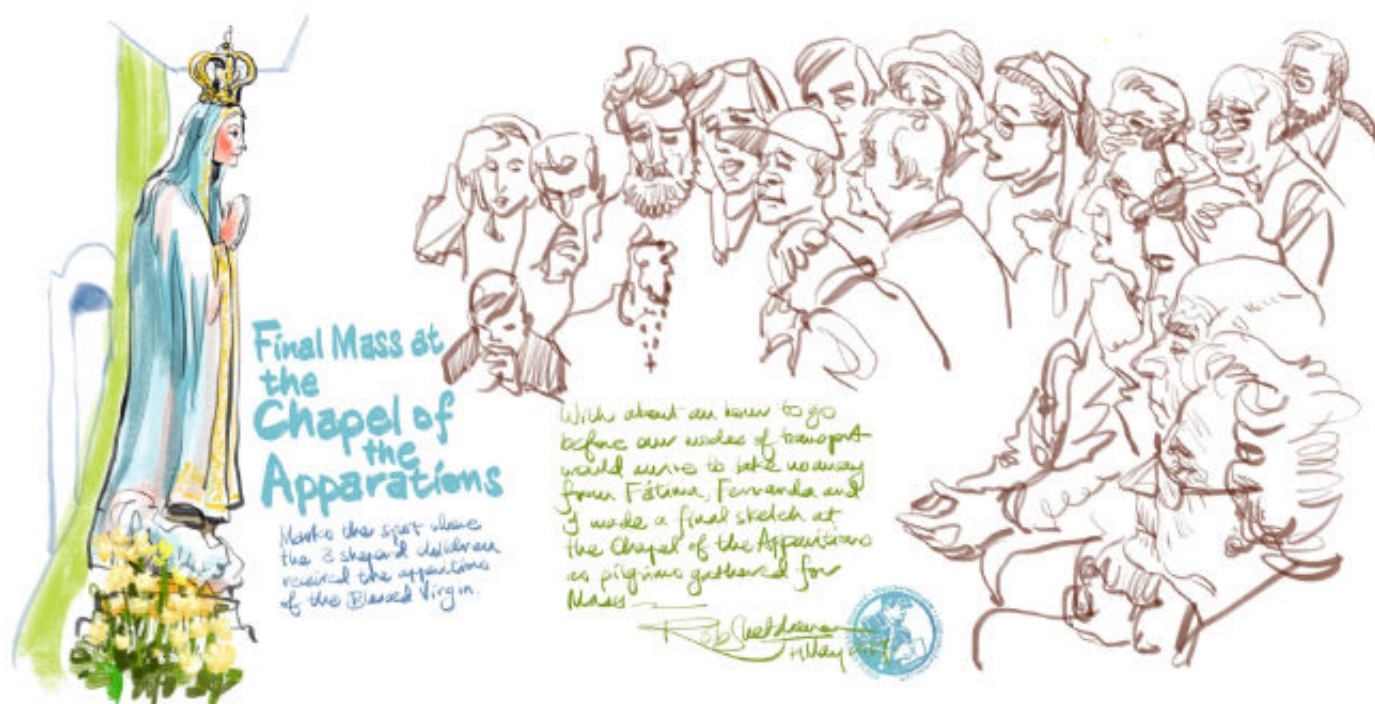 Final Mass at
the
Chapel of
the
Apparations
Marks the spot where
the 3 shepard children
received the apparitions
of the Blessed Virgin.
With about an hour to go
before our modes of transport
would arrive to take us away
from Fátima, Fernanda and
I made a final sketch at
the Chapel of the Apparitions
as pilgrims gathered for
Mass